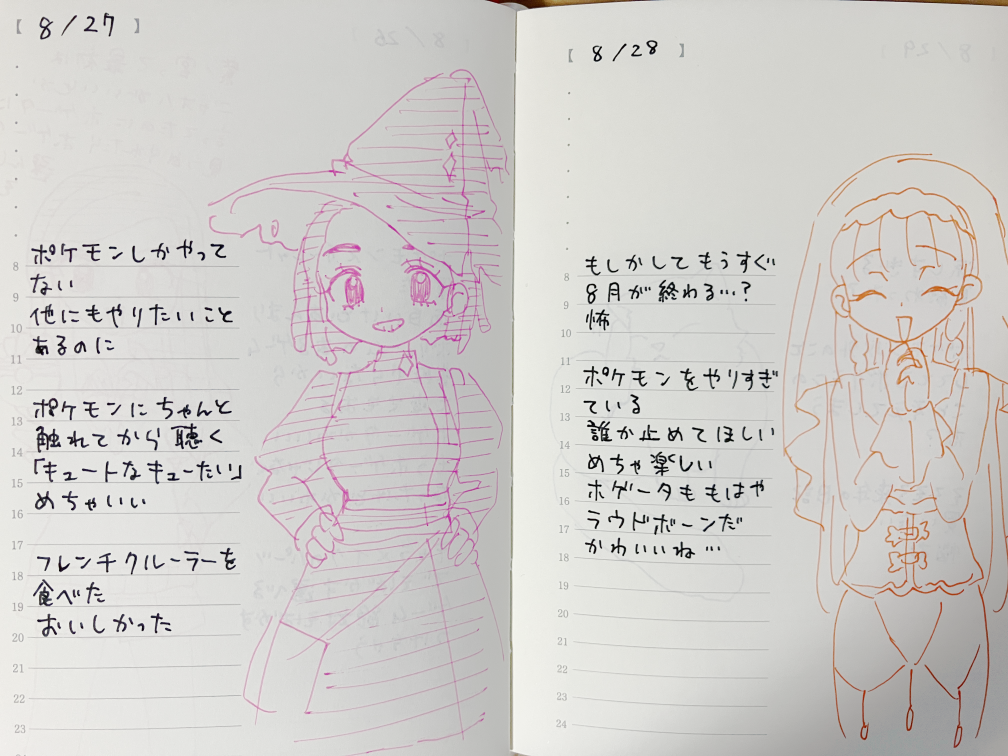 【 8/27 】
ポケモンしかやって
ない
他にもやりたいこと
あるのに
ポケモンにちゃんと
触れてから聴く
「キュートなキューたい」
めちゃいい
フレンチクルーラーを
食べた
おいしかった
8
9
10
11
12
13
14
15
16
17
18
19
20
21
22
23
【 8/28 】
もしかしてもうすぐ
8月が終わる…?
怖
ポケモンをやりすぎ
ている
誰か止めてほしい
めちゃ楽しい
ホゲータももはや
ラウドボーンだ
かわいいね…
8
9
10
11
12
13
14
15
16
17
18
19
20
21
22
23
24